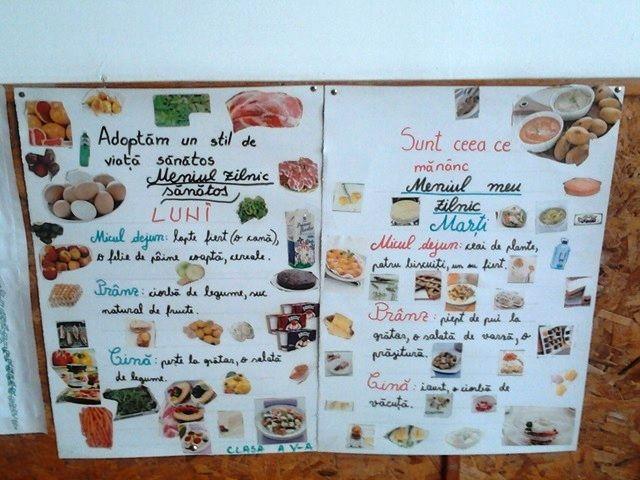 Adoptăm un stil de
viață sănătos
Meniul zilnic
sănătos
LUNI
Micul dejun: lapte fiert (o cană),
o felie de pâine coaptă, cereale.
Prânz: ciorbă de legume, suc
natural de fructe.
Cină: pește la grătar, o salată
de legume.
CLASA A V-A
Sunt ceea ce
mănânc
Meniul meu
zilnic
Marți
Micul dejun: ceai de plante,
patru biscuiți, un ou fiert.
Prânz: piept de pui la
grătar, o salată de varză, o
prăjitură.
Cină: iaurt, o ciorbă de
văcuță.